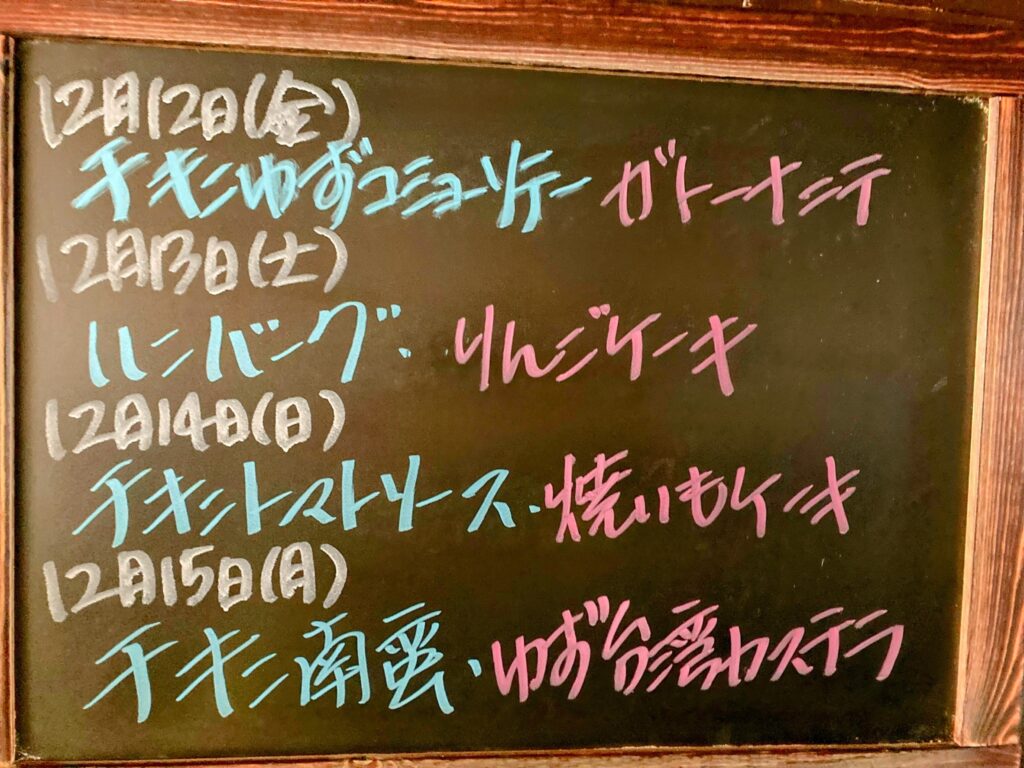 12月12日(金)
チキンゆずコショーソテー ガトーナンテ
12月13日(土)
ハンバーグ・りんごケーキ
12月14日(日)
チキントマトソース・焼いもケーキ
12月15日(月)
チキン南蛮・ゆず台湾カステラ